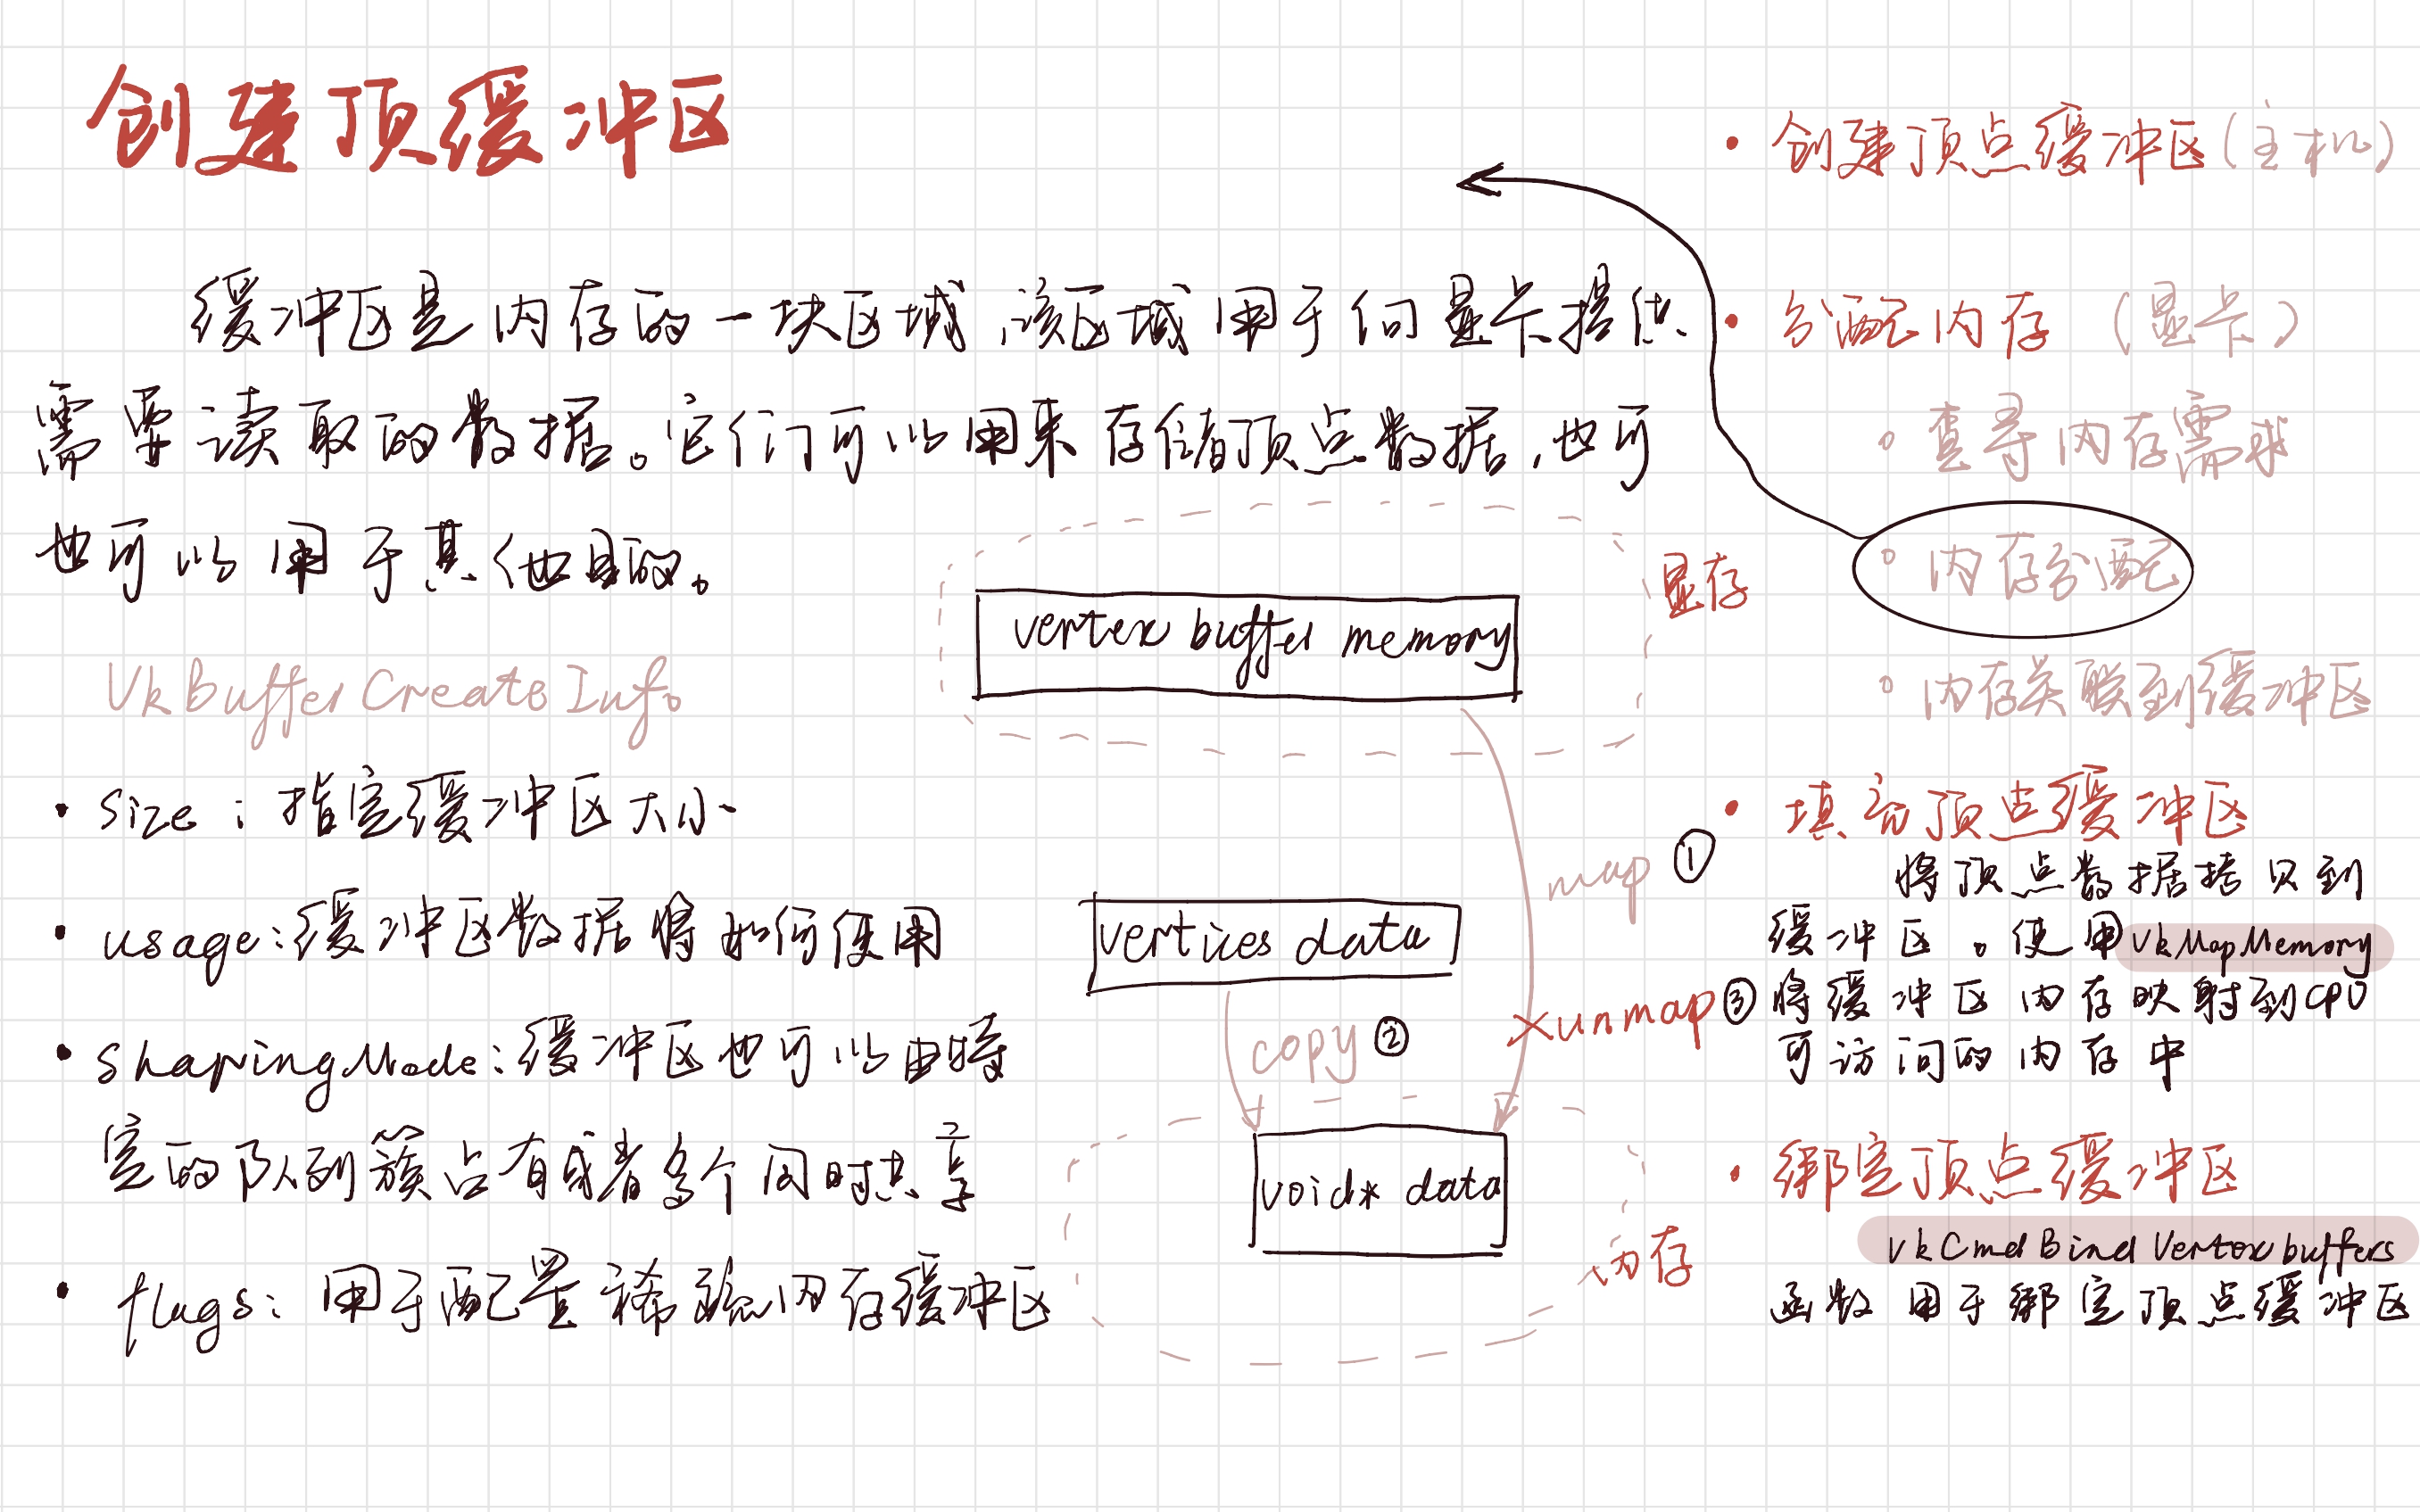 创建顶缓冲区
缓冲区是内存的一块区域,该区域用于向显卡提供
需要读取的数据。它们可以用来存储顶点数据,也可
也可以用于其他目的。
VkBufferCreateInfo
• size:指定缓冲区大小
• usage:缓冲区数据将如何使用
• sharingMode:缓冲区也可以由特
定的队列簇占有或者多个同时共享
• flags:用于配置稀疏内存缓冲区
vertex buffer memory
显存
map ①
vertices data
copy ②
×unmap ③
void* data
内存
• 创建顶点缓冲区(主机)
• 分配内存 (显卡)
◦ 查寻内存需求
◦ 内存分配
◦ 内存关联到缓冲区
• 填充顶点缓冲区
将顶点数据拷贝到
缓冲区。使用vkMapMemory
将缓冲区内存映射到CPU
可访问的内存中
• 绑定顶点缓冲区
vkCmdBindVertexbuffers
函数用于绑定顶点缓冲区